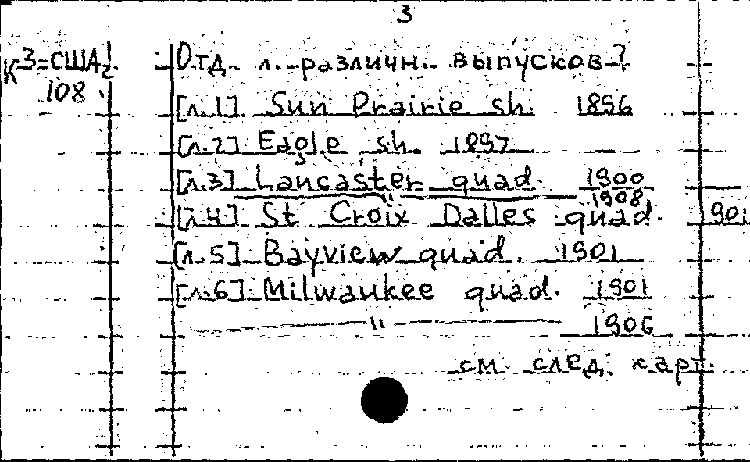 3
К 3=США/2 Отд. л. различн. выпусков?
108
[л.1] Sun Prairie sh. 1896
[л.2] Eagle sh. 1897
[л.3] Lancaster quad. 1900
—"— 1908
[л.4] St Croix Dalles quad. 1901
[л.5] Bayview quad. 1901
[л.6] Milwaukee quad. 1901
—"— 1906
см. след. карт.